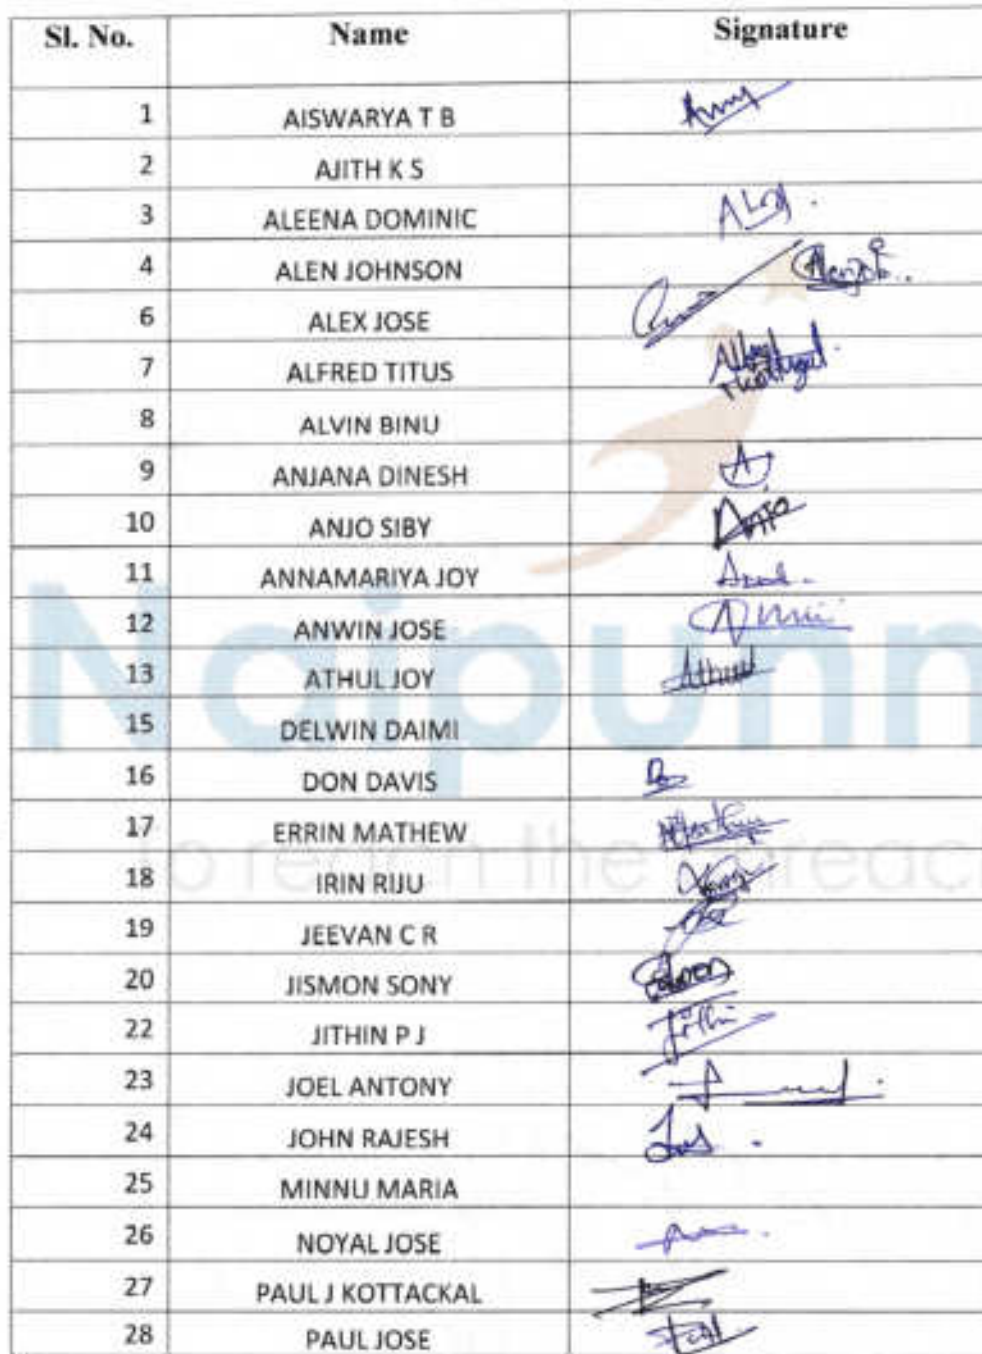 Sl. No. Name Signature
1 AISWARYA T B
2 AJITH K S
3 ALEENA DOMINIC
4 ALEN JOHNSON
6 ALEX JOSE
7 ALFRED TITUS
8 ALVIN BINU
9 ANJANA DINESH A
10 ANJO SIBY Anjo
11 ANNAMARIYA JOY
12 ANWIN JOSE
13 ATHUL JOY Athul
15 DELWIN DAIMI
16 DON DAVIS
17 ERRIN MATHEW
18 IRIN RIJU
19 JEEVAN C R
20 JISMON SONY
22 JITHIN P J Jithin
23 JOEL ANTONY
24 JOHN RAJESH
25 MINNU MARIA
26 NOYAL JOSE
27 PAUL J KOTTACKAL
28 PAUL JOSE
Naipunn
To reach the unreac